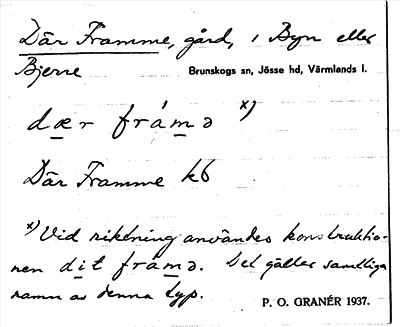 Där Framme, gård, i Byn eller
Bjerne
Brunskogs sn, Jösse hd, Värmlands l.
dær fráma x)
Där Framme kb
x) Vid riktning användes konstruktio-
nen dit frama. Det gäller samtliga
namn av denna typ.
P. O. GRANÉR 1937.